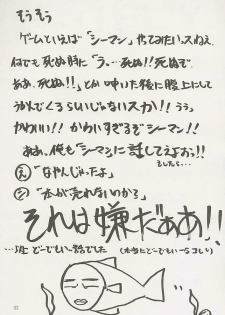 そうそう
ゲームといえば「シーマン」やってみたいっスねぇ
何でも死ぬ時に「う…死ぬ!!死ぬぞ
ああ、死ぬ!!」とか呟いた後に腹上にして
うかんでくるらしいじゃないスカ!! うぅ
かわいい!! かわいすぎるぞシーマン!!
ああ、俺もシーマンに話してえよおっ!!
もしたら…
え「なやんじゃったよ」
シ「本が売れないのか?」
それは嫌だああ!!
…当に どーでもいー話でした
(本当にどーでもいーなコレ)